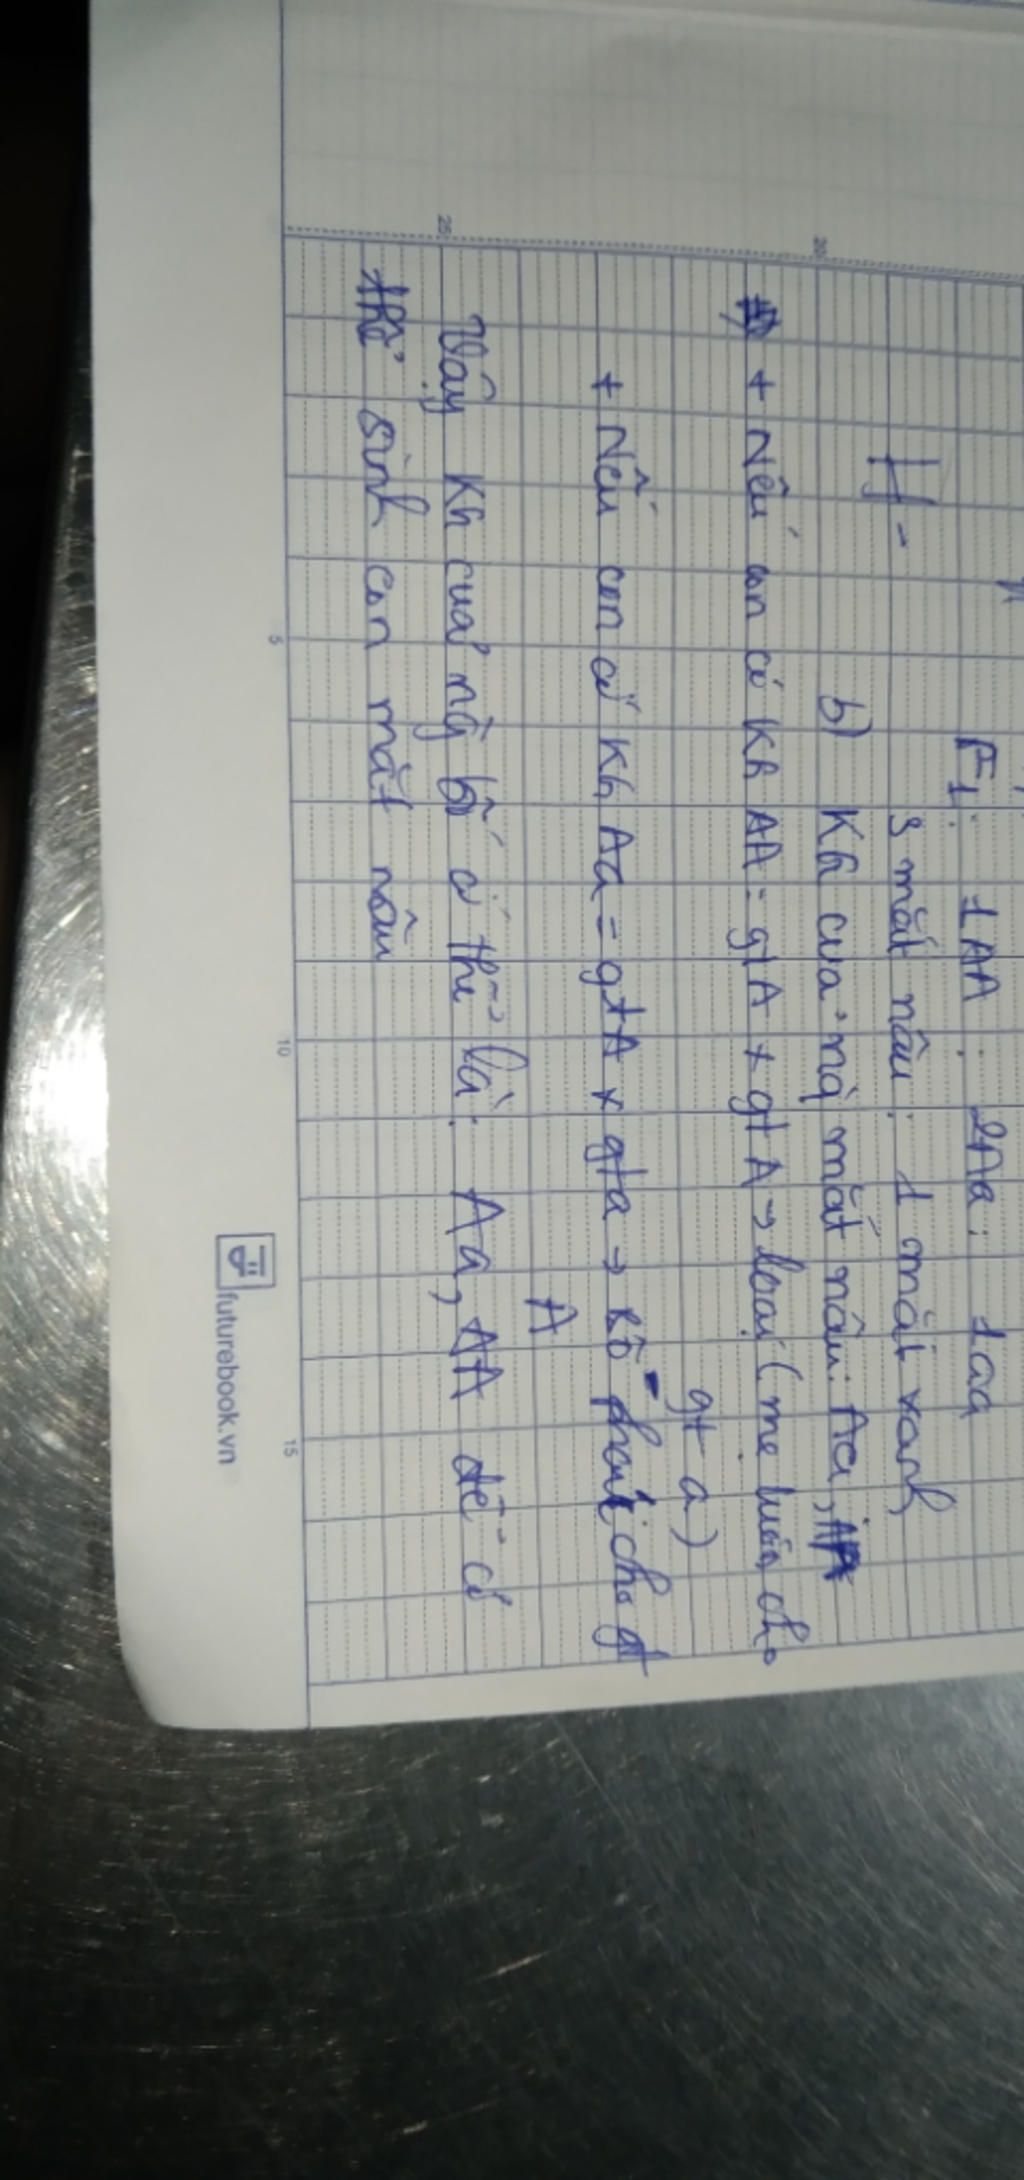 F1: 1AA : 2Aa : 1aa
3 mắt nâu : 1 mắt xanh
b) KG của ng mắt nâu: Aa, AA
+ Nếu con có KG AA = gt A x gt A → loại (mẹ luôn cho
gt a)
+ Nếu con có KG Aa = gt A x gt a → Bố phải cho gt
A
Vậy KG của ng bố có thể là: Aa, AA để có
thể sinh con mắt nâu
20
25
5
10
15
futurebook.vn